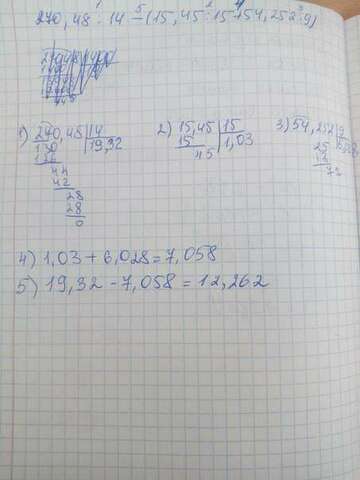 270,48 : 14 - (15,45 : 15 + 54,252 : 9)
1) 270,48 | 14
130 | 19,32
126
44
42
28
28
0
2) 15,45 | 15
15 | 1,03
45
3) 54,252 | 9
25
18
72
4) 1,03 + 6,028 = 7,058
5) 19,32 - 7,058 = 12,262